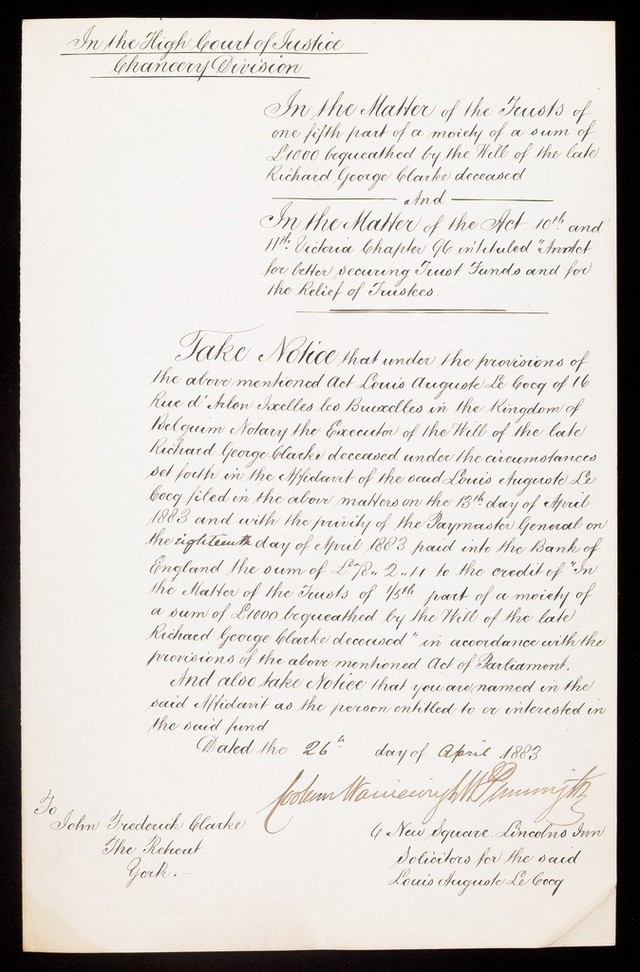 In the High Court of Justice
Chancery Division
In the Matter of the Trusts of
one fifth part of a moiety of a sum of
£1000 bequeathed by the Will of the late
Richard George Clarke deceased
And
In the Matter of the Act 10th and
11th Victoria Chapter 96 intituled "An Act
for better securing Trust Funds and for
the Relief of Trustees
Take Notice that under the provisions of
the above mentioned Act Louis Auguste Le Cocq of 16
Rue d'Arlon Ixelles les Bruxelles in the Kingdom of
Belgium Notary the Executor of the Will of the late
Richard George Clarke deceased under the circumstances
set forth in the Affidavit of the said Louis Auguste Le
Cocq filed in the above matters on the 13th day of April
1883 and with the privity of the Paymaster General on
the eighteenth day of April 1883 paid into the Bank of
England the sum of £78,, 2,, 11 to the credit of "In
the Matter of the Trusts of 1/5th part of a moiety of
a sum of £1000 bequeathed by the Will of the late
Richard George Clarke deceased" in accordance with the
provisions of the above mentioned Act of Parliament.
And also take Notice that you are named in the
said Affidavit as the person entitled to or interested in
the said fund
Dated the 26th day of April 1883
To
John Frederick Clarke
The Retreat
York.
6 New Square Lincolns Inn
Solicitors for the said
Louis Auguste Le Cocq